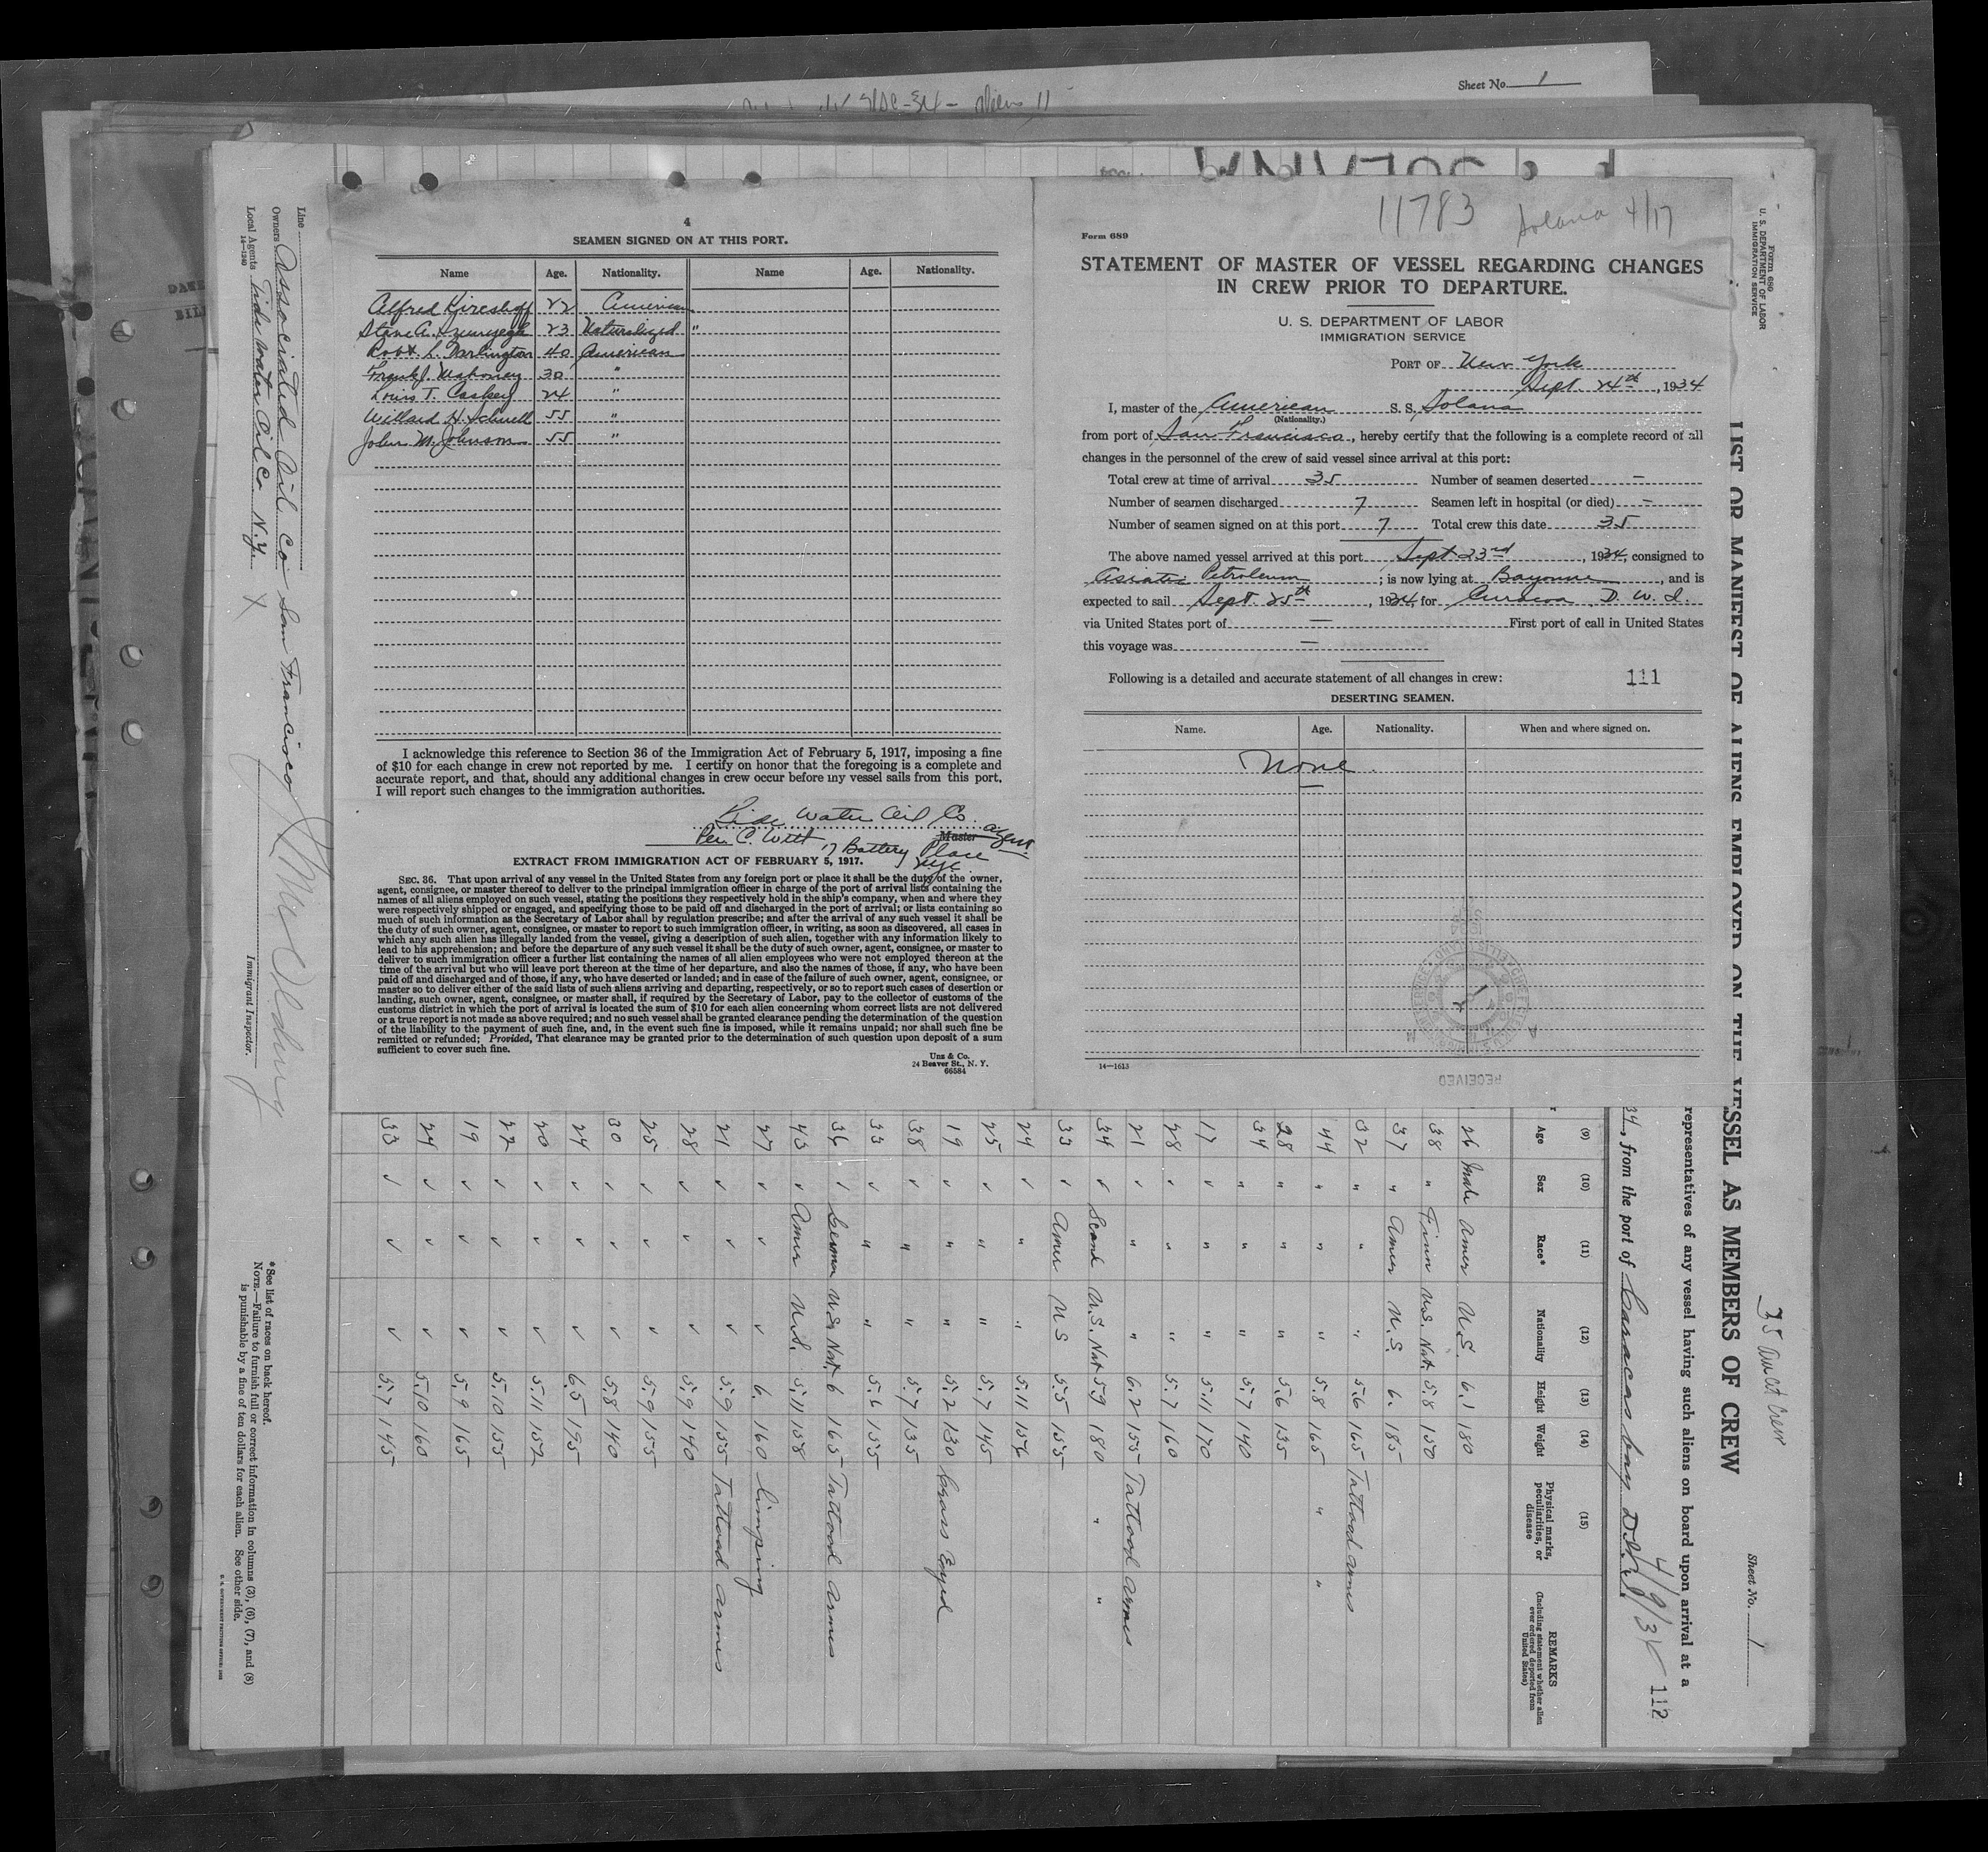 Sheet No. 1
4
SEAMEN SIGNED ON AT THIS PORT.
Name Age. Nationality. Name Age. Nationality.
Alfred 22 American
Steve A. 23 Naturalized "
Robt L. Darlington 40 American
Frank J. Mahoney 30 "
Louis T. Caskey 24 "
Willard H. 55 "
John M. Johnson 55 "
I acknowledge this reference to Section 36 of the Immigration Act of February 5, 1917, imposing a fine
of $10 for each change in crew not reported by me. I certify on honor that the foregoing is a complete and
accurate report, and that, should any additional changes in crew occur before my vessel sails from this port,
I will report such changes to the immigration authorities.
Tide Water Oil Co. agent
Per C. Witt Master
17 Battery Place
NYC
EXTRACT FROM IMMIGRATION ACT OF FEBRUARY 5, 1917.
SEC. 36. That upon arrival of any vessel in the United States from any foreign port or place it shall be the duty of the owner,
agent, consignee, or master thereof to deliver to the principal immigration officer in charge of the port of arrival lists containing the
names of all aliens employed on such vessel, stating the positions they respectively hold in the ship's company, when and where they
were respectively shipped or engaged, and specifying those to be paid off and discharged in the port of arrival; or lists containing so
much of such information as the Secretary of Labor shall by regulation prescribe; and after the arrival of any such vessel it shall be
the duty of such owner, agent, consignee, or master to report to such immigration officer, in writing, as soon as discovered, all cases in
which any such alien has illegally landed from the vessel, giving a description of such alien, together with any information likely to
lead to his apprehension; and before the departure of any such vessel it shall be the duty of such owner, agent, consignee, or master to
deliver to such immigration officer a further list containing the names of all alien employees who were not employed thereon at the
time of the arrival but who will leave port thereon at the time of her departure, and also the names of those, if any, who have been
paid off and discharged and of those, if any, who have deserted or landed; and in case of the failure of such owner, agent, consignee, or
master so to deliver either of the said lists of such aliens arriving and departing, respectively, or so to report such cases of desertion or
landing, such owner, agent, consignee, or master shall, if required by the Secretary of Labor, pay to the collector of customs of the
customs district in which the port of arrival is located the sum of $10 for each alien concerning whom correct lists are not delivered
or a true report is not made as above required; and no such vessel shall be granted clearance pending the determination of the question
of the liability to the payment of such fine, and, in the event such fine is imposed, while it remains unpaid; nor shall such fine be
remitted or refunded; Provided, That clearance may be granted prior to the determination of such question upon deposit of a sum
sufficient to cover such fine.
Unz & Co.
24 Beaver St., N. Y.
66584
11783 Solana 4/17
Form 689
STATEMENT OF MASTER OF VESSEL REGARDING CHANGES
IN CREW PRIOR TO DEPARTURE.
U. S. DEPARTMENT OF LABOR
IMMIGRATION SERVICE
PORT OF New York
Sept. 24th, 1934
I, master of the American S. S. Solana
(Nationality.)
from port of San Francisco, hereby certify that the following is a complete record of all
changes in the personnel of the crew of said vessel since arrival at this port:
Total crew at time of arrival 35 Number of seamen deserted —
Number of seamen discharged 7 Seamen left in hospital (or died) —
Number of seamen signed on at this port 7 Total crew this date 35
The above named vessel arrived at this port Sept 23rd, 1934, consigned to
Asiatic Petroleum; is now lying at Bayonne, and is
expected to sail Sept. 25th, 1934, for Curacoa D. W. I.
via United States port of — First port of call in United States
this voyage was —
Following is a detailed and accurate statement of all changes in crew:
111
DESERTING SEAMEN.
Name. Age. Nationality. When and where signed on.
None
14—1613
RECEIVED
Form 689
U. S. DEPARTMENT OF LABOR
IMMIGRATION SERVICE
35 Sheet No. 1
LIST OR MANIFEST OF ALIENS EMPLOYED ON THE VESSEL AS MEMBERS OF CREW
representatives of any vessel having such aliens on board upon arrival at a
34, from the port of Caracas bay D.W.I. 4/9/34 112
(9) (10) (11) (12) (13) (14) (15)
Age Sex Race* Nationality Height Weight Physical marks, peculiarities, or disease REMARKS
(Including statement whether alien ever ordered deported from United States)
26 male Amer U.S. 6.1 180
38 " Finn U.S. Nat. 5.8 150
37 " Amer U.S. 6. 185
32 " " " 5.6 165 Tattood armes
44 " " " 5.8 165 " "
28 " " " 5.6 135
34 " " " 5.7 140
17 ✓ " " 5.11 170
28 ✓ " " 5.7 160
21 ✓ " " 6.2 155 Tattood armes
34 ✓ Scand U.S. Nat 5.9 180 " "
33 ✓ Amer U S 5.5 155
24 ✓ " " 5.11 156
25 ✓ " " 5.7 145
19 ✓ " " 5.2 130 Cross Eyed
38 ✓ " " 5.7 135
33 ✓ " " 5.6 155
36 ✓ German U.S. Nat. 6 165 Tattood armes
43 ✓ Amer U.S. 5.11 158
27 ✓ ✓ ✓ 6. 160 limping
21 ✓ ✓ ✓ 5.9 155 Tattood armes
28 ✓ ✓ ✓ 5.9 140
25 ✓ ✓ ✓ 5.9 155
30 ✓ ✓ ✓ 5.8 140
24 ✓ ✓ ✓ 6.5 195
20 ✓ ✓ ✓ 5.11 152
22 ✓ ✓ ✓ 5.10 155
19 ✓ ✓ ✓ 5.9 165
24 ✓ ✓ ✓ 5.10 160
33 ✓ ✓ ✓ 5.7 145
Line
Owners Associated Oil Co San Francisco
Local Agents Tide Water Oil Co N.Y. X
14—1240
Immigrant Inspector.
*See list of races on back hereof.
NOTE.—Failure to furnish full or correct information in columns (3), (6), (7), and (8)
is punishable by a fine of ten dollars for each alien. See other side.